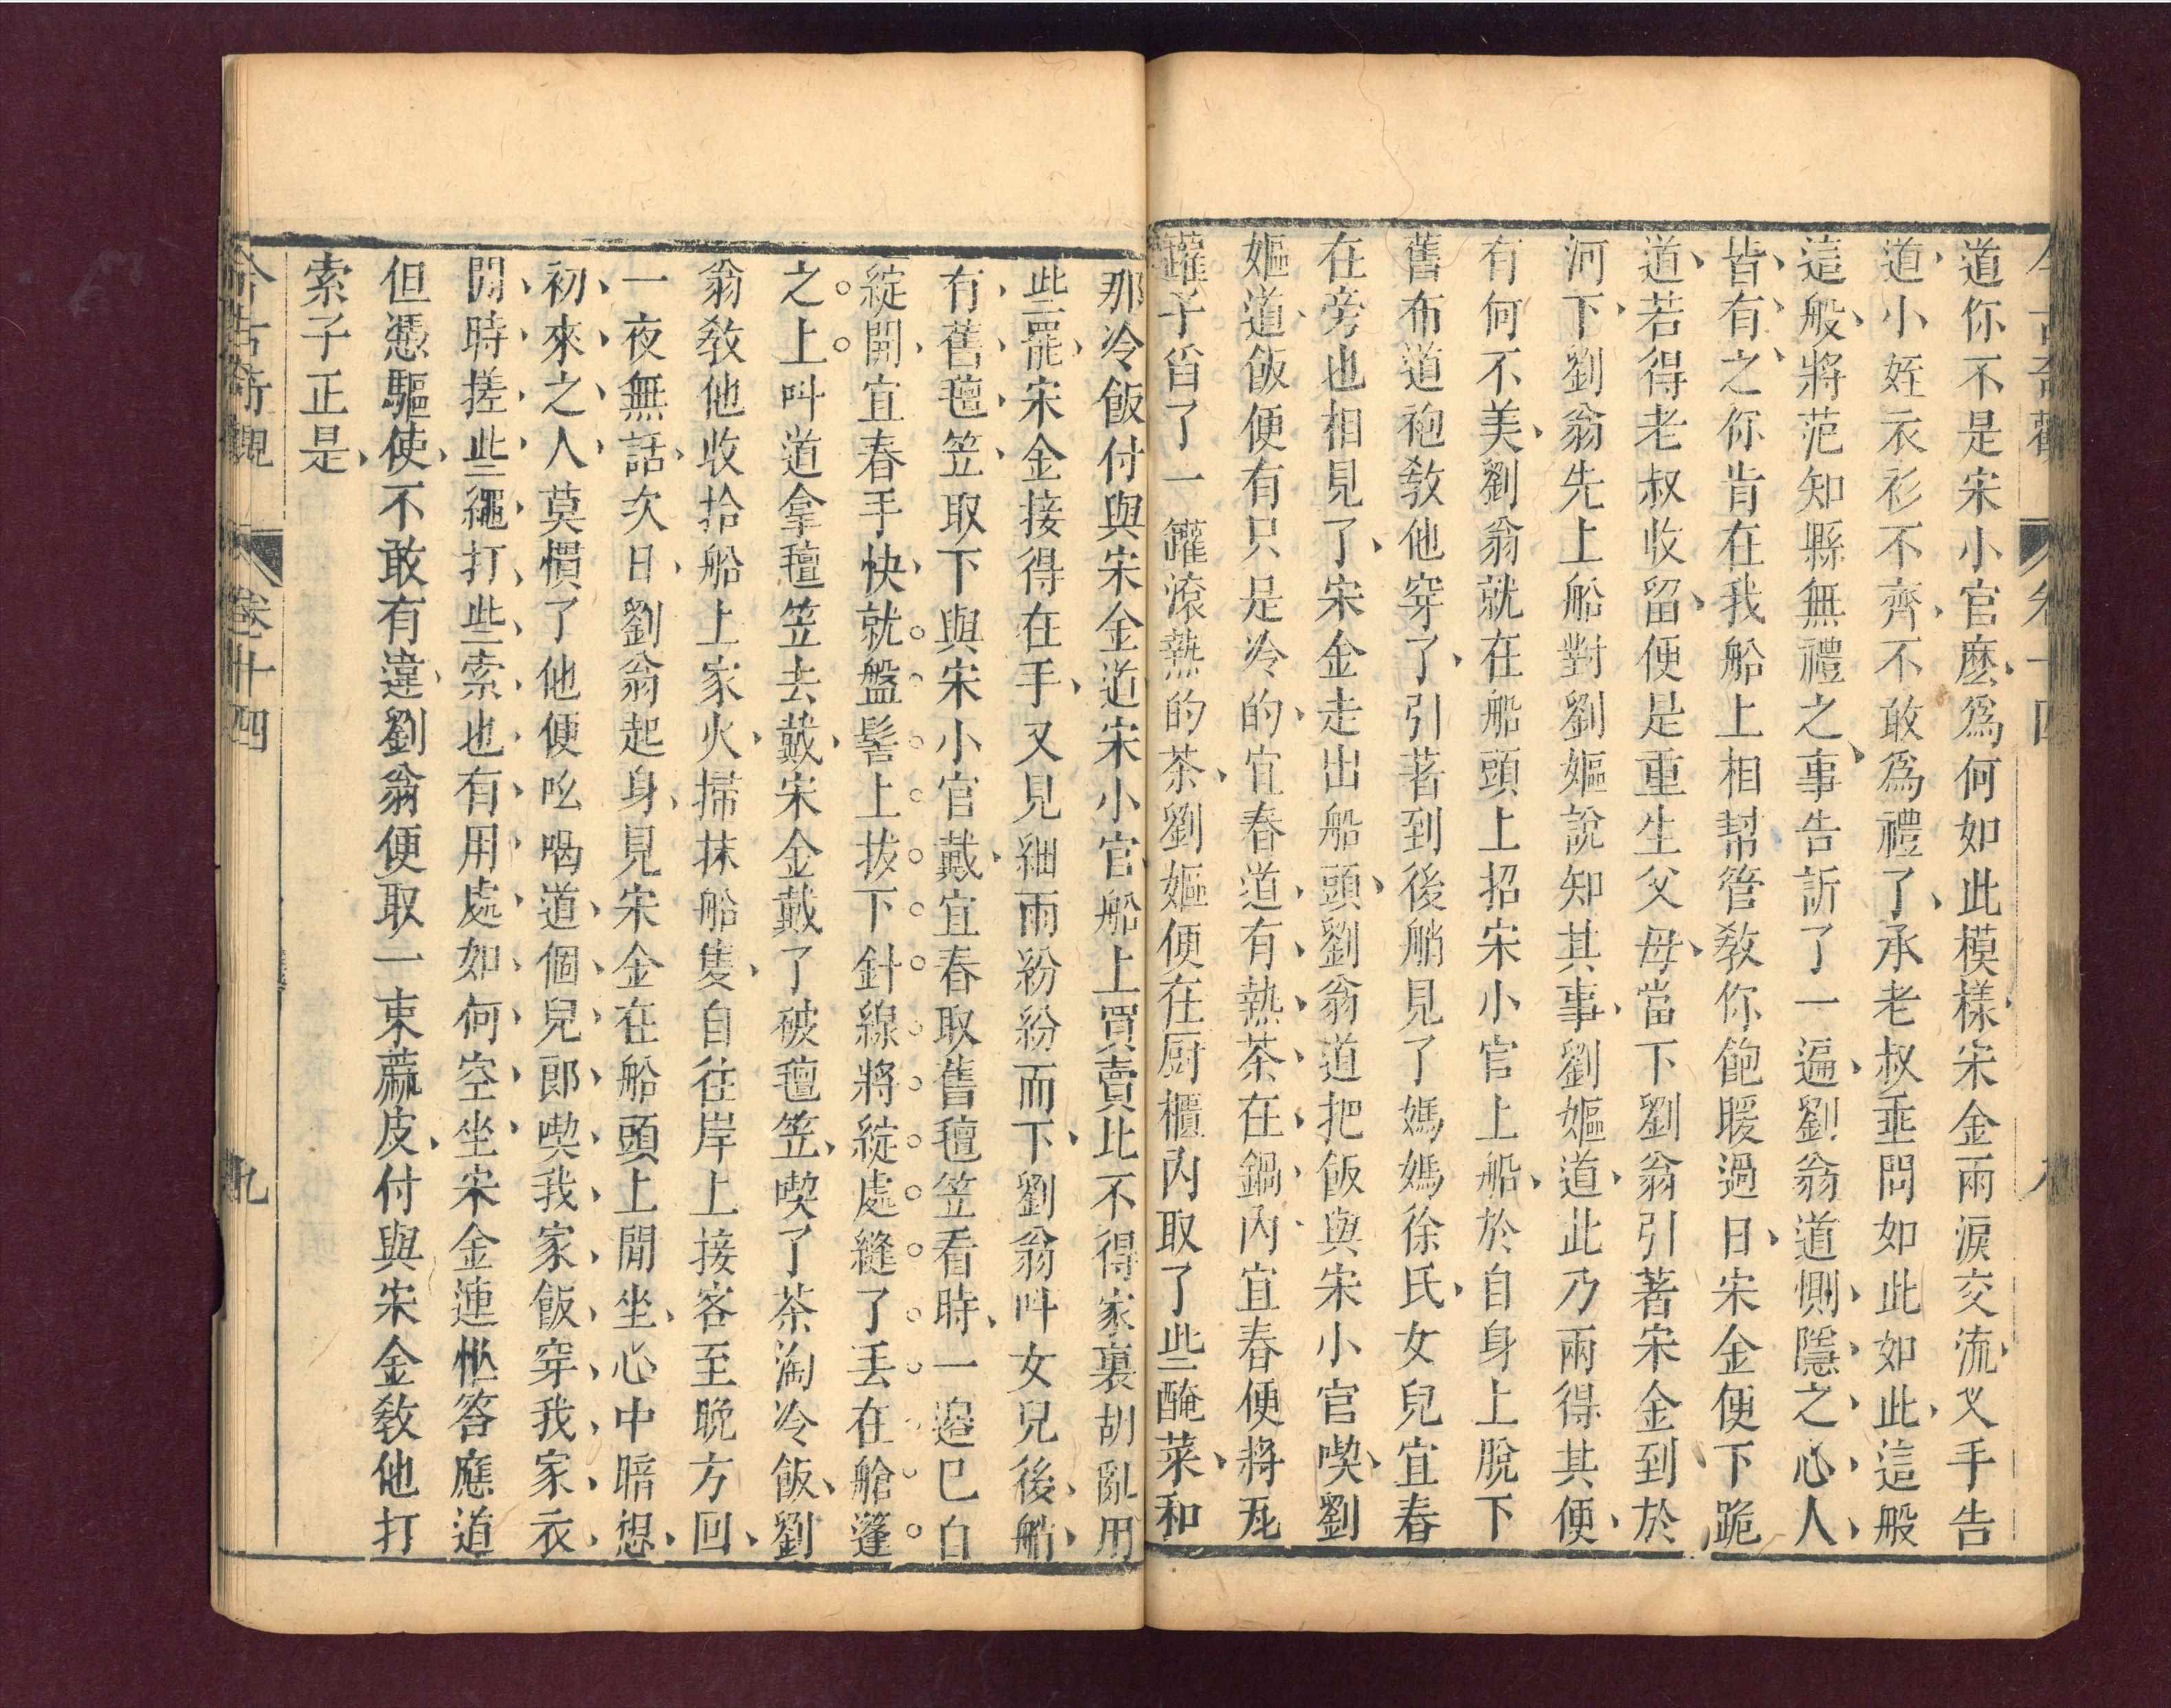 今古奇觀 卷十四
道你不是宋小官麽爲何如此模樣宋金兩淚交流叉手告
道小姪衣衫不齊不敢爲禮了承老叔垂問如此如此這般
這般將范知縣無禮之事告訴了一遍劉翁道惻隱之心人
皆有之你肯在我船上相幫管敎你飽暖過日宋金便下跪
道若得老叔收留便是重生父母當下劉翁引著宋金到於
河下劉翁先上船對劉嫗說知其事劉嫗道此乃兩得其便
有何不美劉翁就在船頭上招宋小官上船於自身上脫下
舊布道袍敎他穿了引著到後艄見了媽媽徐氏女兒宜春
在旁也相見了宋金走出船頭劉翁道把飯與宋小官喫劉
嫗道飯便有只是冷的宜春道有熱茶在鍋內宜春便將瓦
罐子舀了一罐滾熱的茶劉嫗便在厨櫃內取了些醃菜和
那冷飯付與宋金道宋小官船上買賣比不得家裏胡亂用
些罷宋金接得在手又見細雨紛紛而下劉翁叫女兒後艄
有舊氊笠取下與宋小官戴宜春取舊氊笠看時一邉已自
綻開宜春手快就盤髻上拔下針線將綻處縫了丟在艙篷
之上叫道拿氊笠去戴宋金戴了破氊笠喫了茶淘冷飯劉
翁敎他收拾船上家火掃抹船隻自往岸上接客至晚方回
一夜無話次日劉翁起身見宋金在船頭上閒坐心中暗想
初來之人莫慣了他便吆喝道個兒郎喫我家飯穿我家衣
閒時搓些繩打些索也有用處如何空坐宋金連忙答應道
但憑驅使不敢有違劉翁便取一束蔴皮付與宋金敎他打
索子正是
今古奇觀 卷十四 九